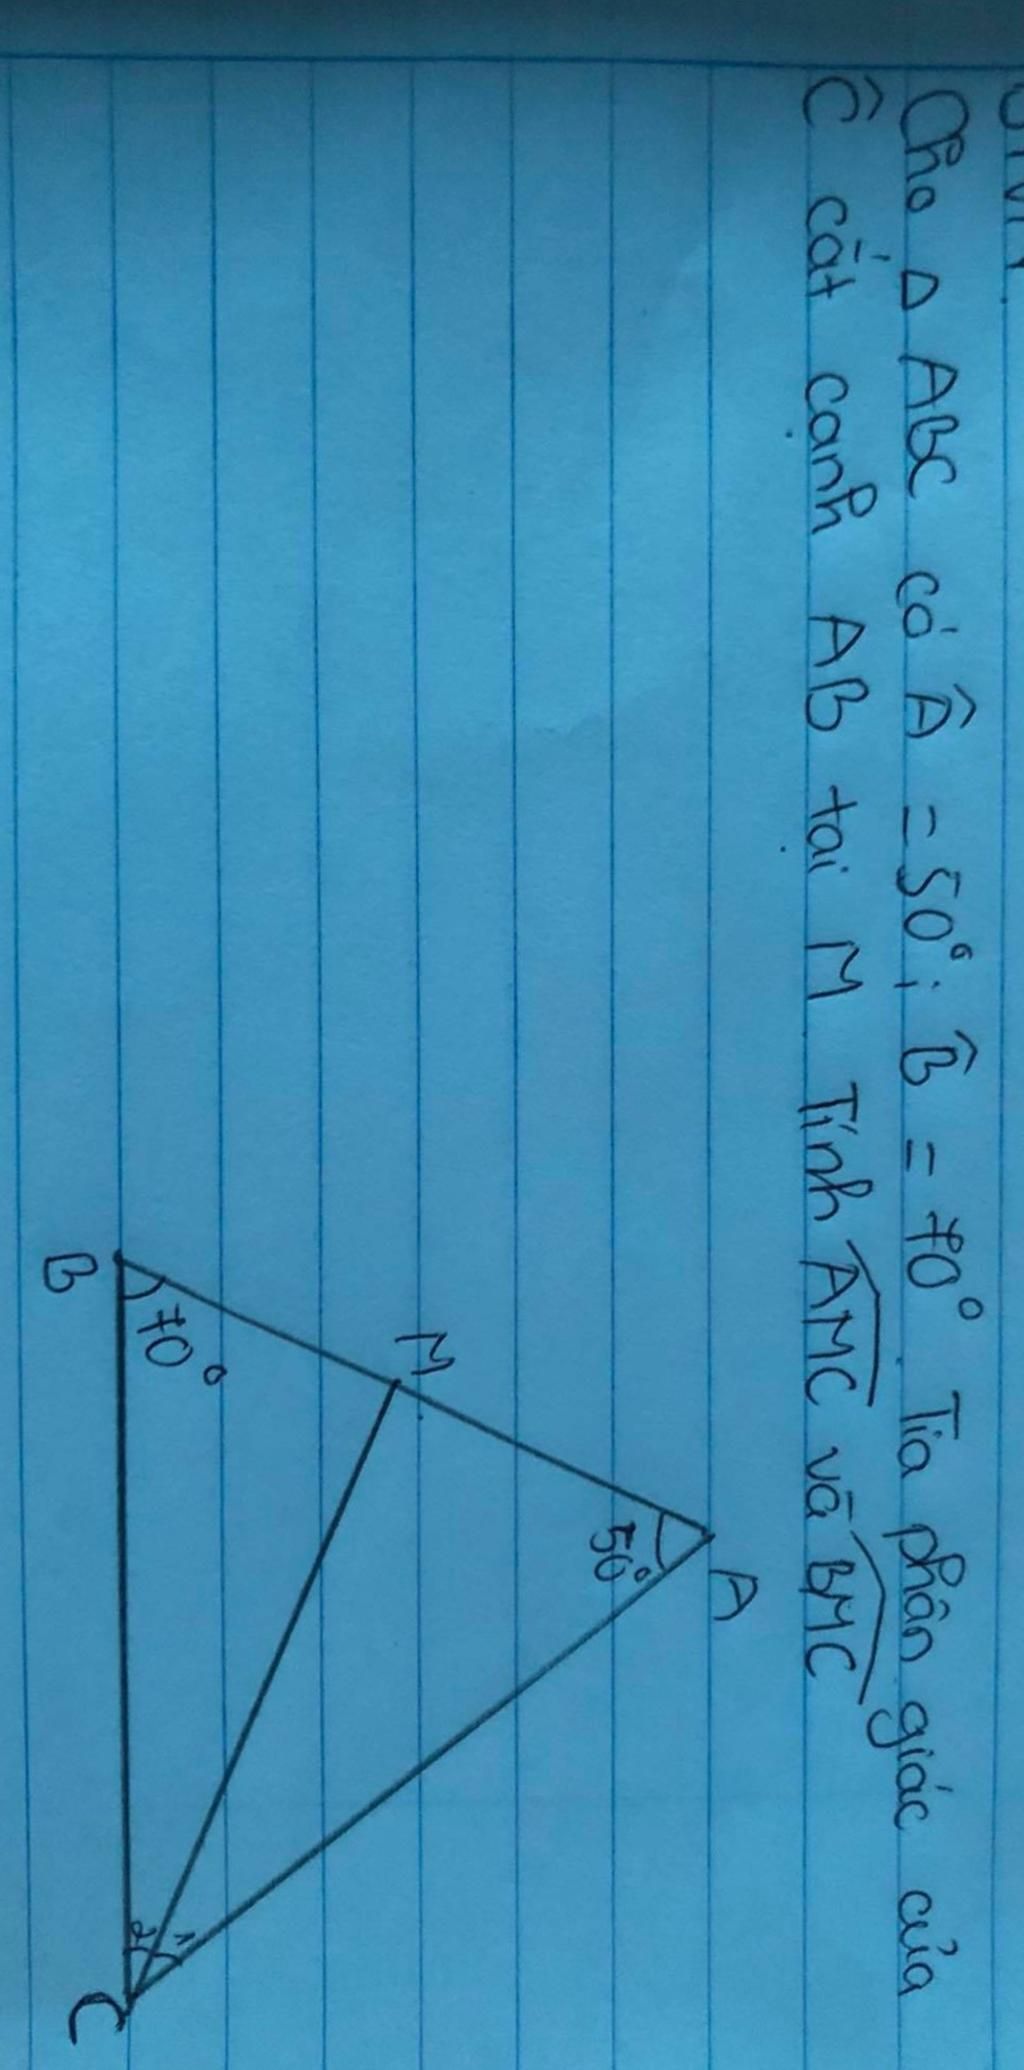 Cho Δ ABC có Â = 50°; B̂ = 70°. Tia phân giác của
Ĉ cắt cạnh AB tại M Tính AMC và BMC
A
50°
M
70°
1
2
B
C